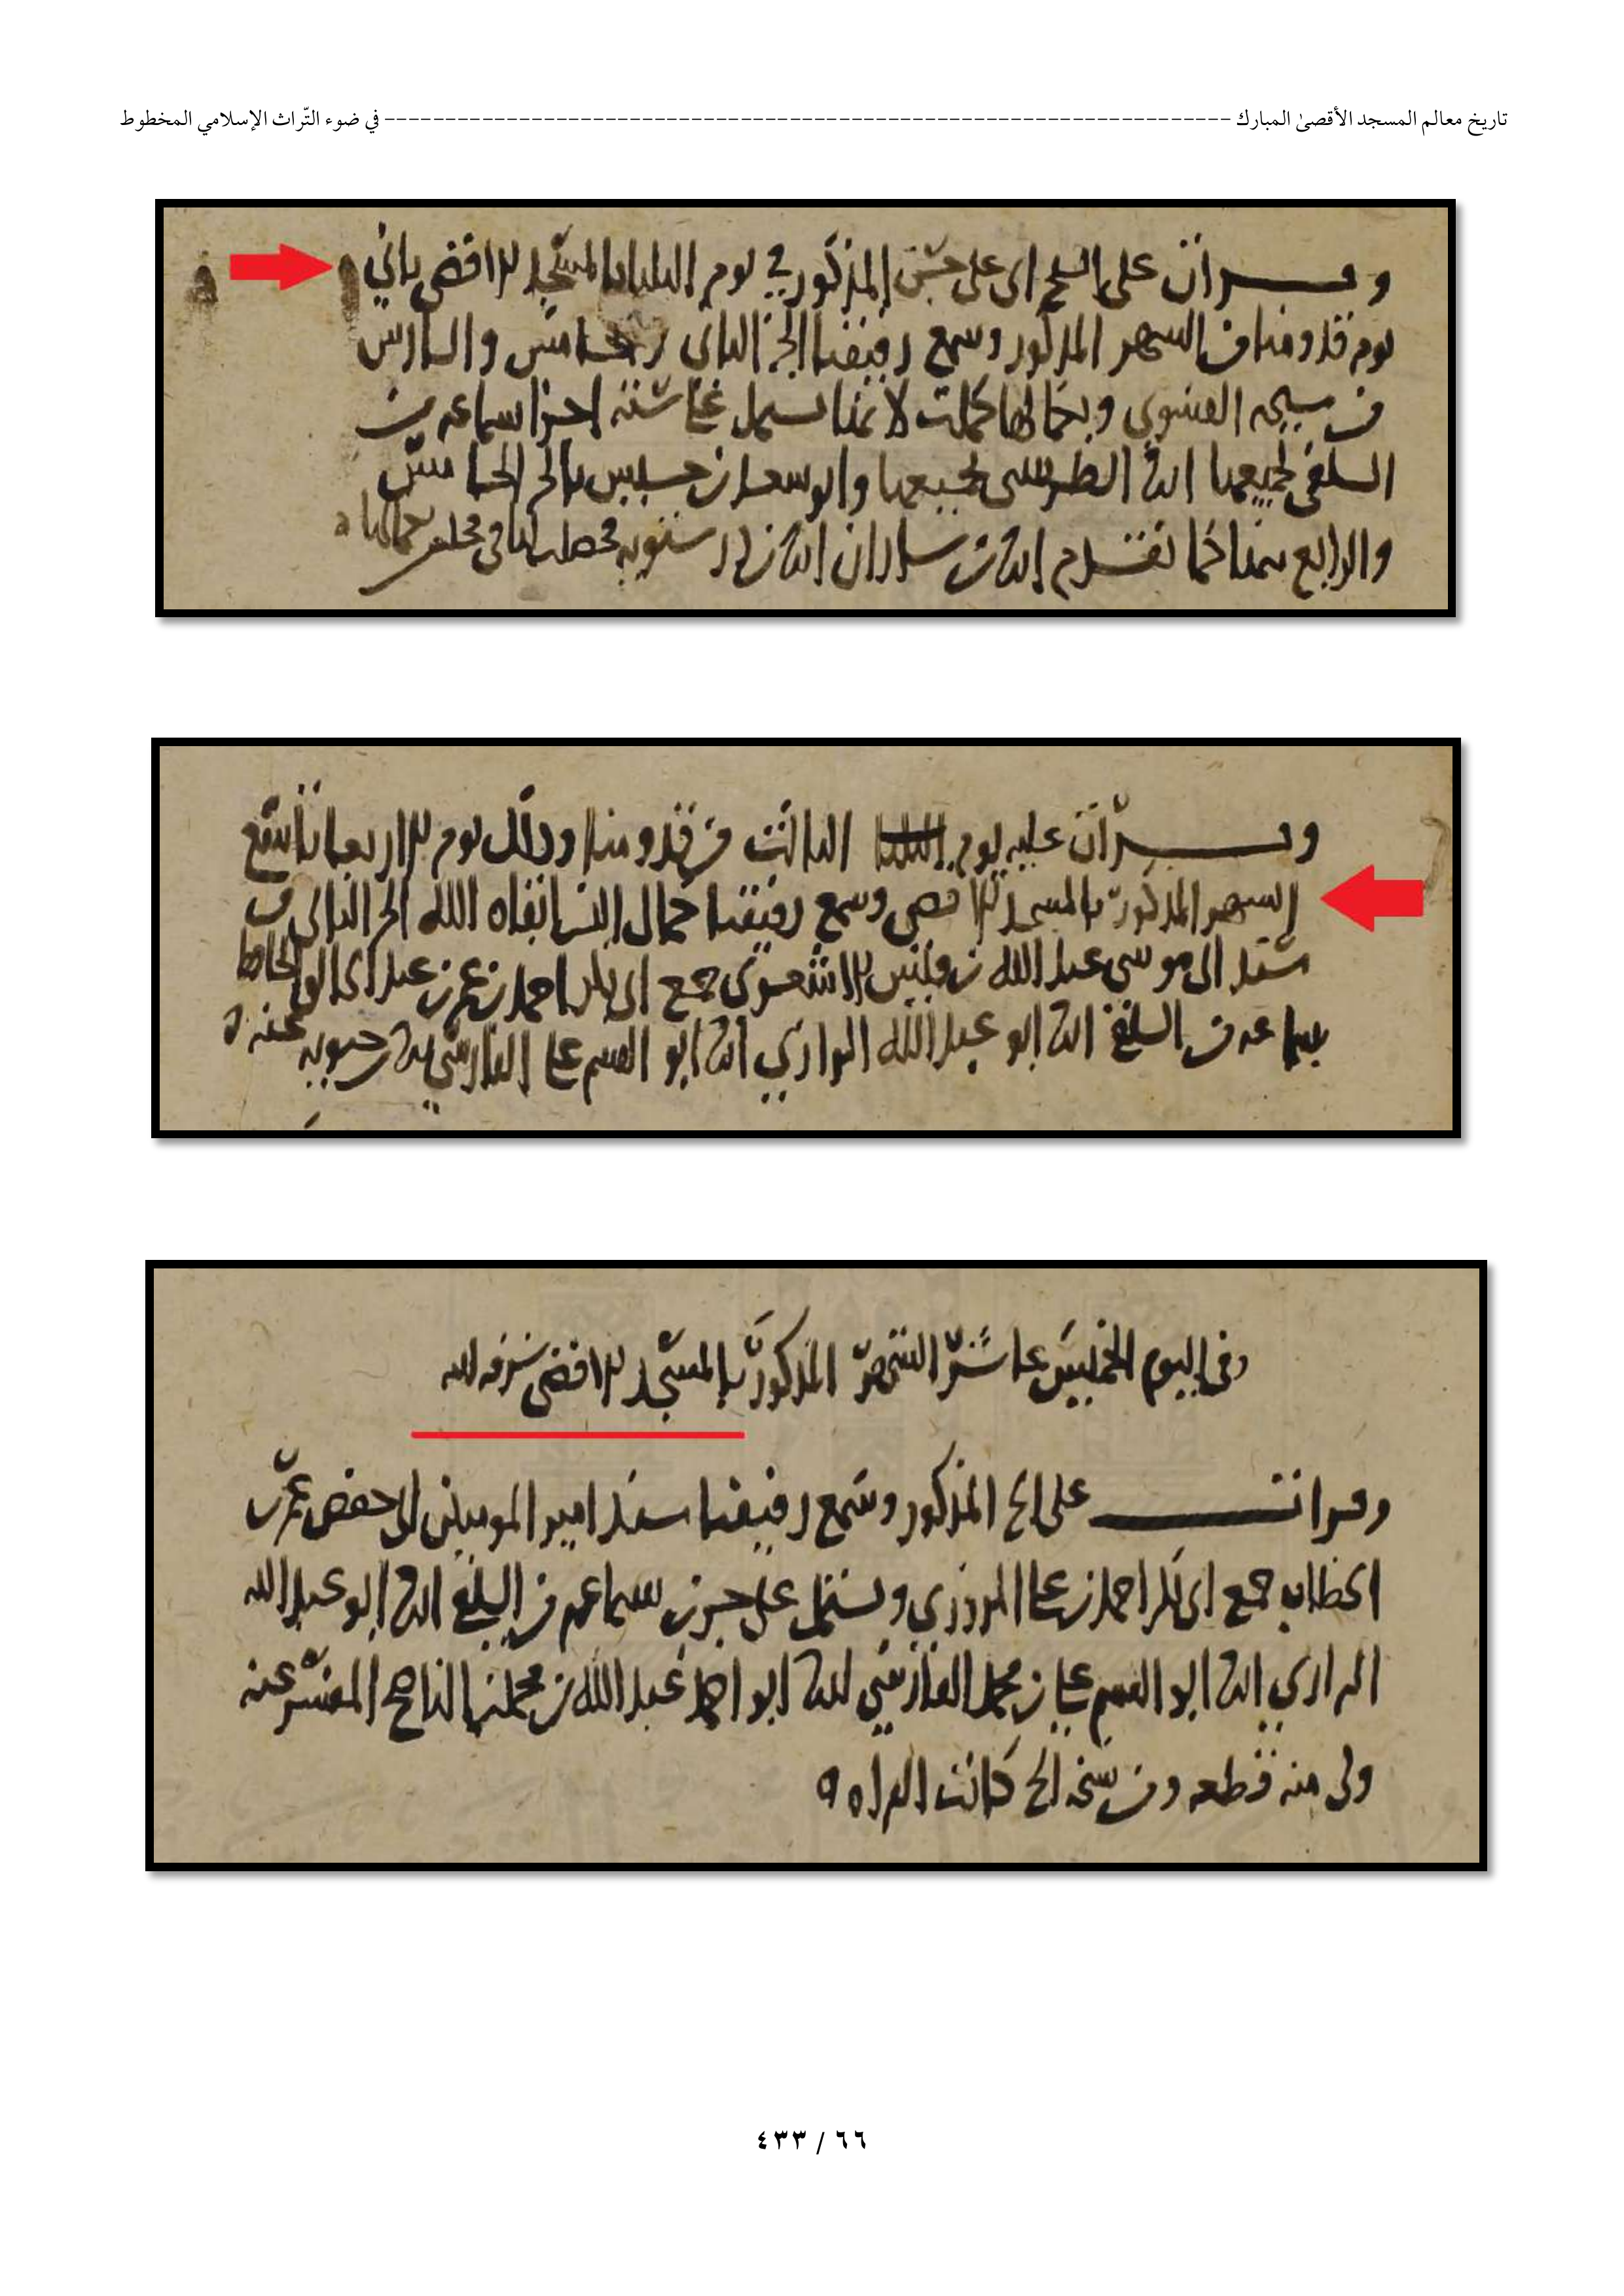 تاريخ معالم المسجد الأقصىٰ المبارك ---------------------------------------------------------------------- في ضوء التّراث الإسلامي المخطوط
وقرأت على الشيخ ابى على حسن المذكور في يوم الثلثا بالمسجد الاقصى ثاني
يوم قدومنا من الشهر المذكور وسمع رفيقنا الجز الثانى والخامس والسادس
من الفسوى وبحمالها كملت لانها ستة اجزا سماعه من
السلفى لجميعها انا لجميعها وابو سعد بن بالجز الخامس
والرابع كما تقدم انا بن شاذان انا بن درستويه
وقرأت عليه يوم الثالث من قدومنا وذلك يوم الاربعا تاسع
الشهر المذكور بالمسجد الاقصى وسمع رفيقنا جمال الدين ابقاه الله الجز الثانى من
مسند ابى موسى عبد الله بن قيس الاشعرى جمع ابى بكر احمد بن عمرو بن عبد الخالق الحافظ
بسماعه من السلفي انا ابو عبد الله الرازي انا ابو القسم على الفارسي عنه
وفى اليوم الخميس عاشر الشهر المذكور بالمسجد الاقصى شرفه الله
وقرأت على الشيخ المذكور وسمع رفيقنا مسند امير المومنين ابى حفص عمر بن
الخطاب جمع ابى بكر احمد بن على المروزي ويشتمل على جزين بسماعه من السلفي انا ابو عبد الله
الرازي انا ابو القسم على بن محمد الفارسي انا ابو احمد عبد الله بن محمد بن الناصح المفسر عنه
ولى منه قطعه ومن نسخه الشيخ كانت القراه
٦٦ / ٤٣٣